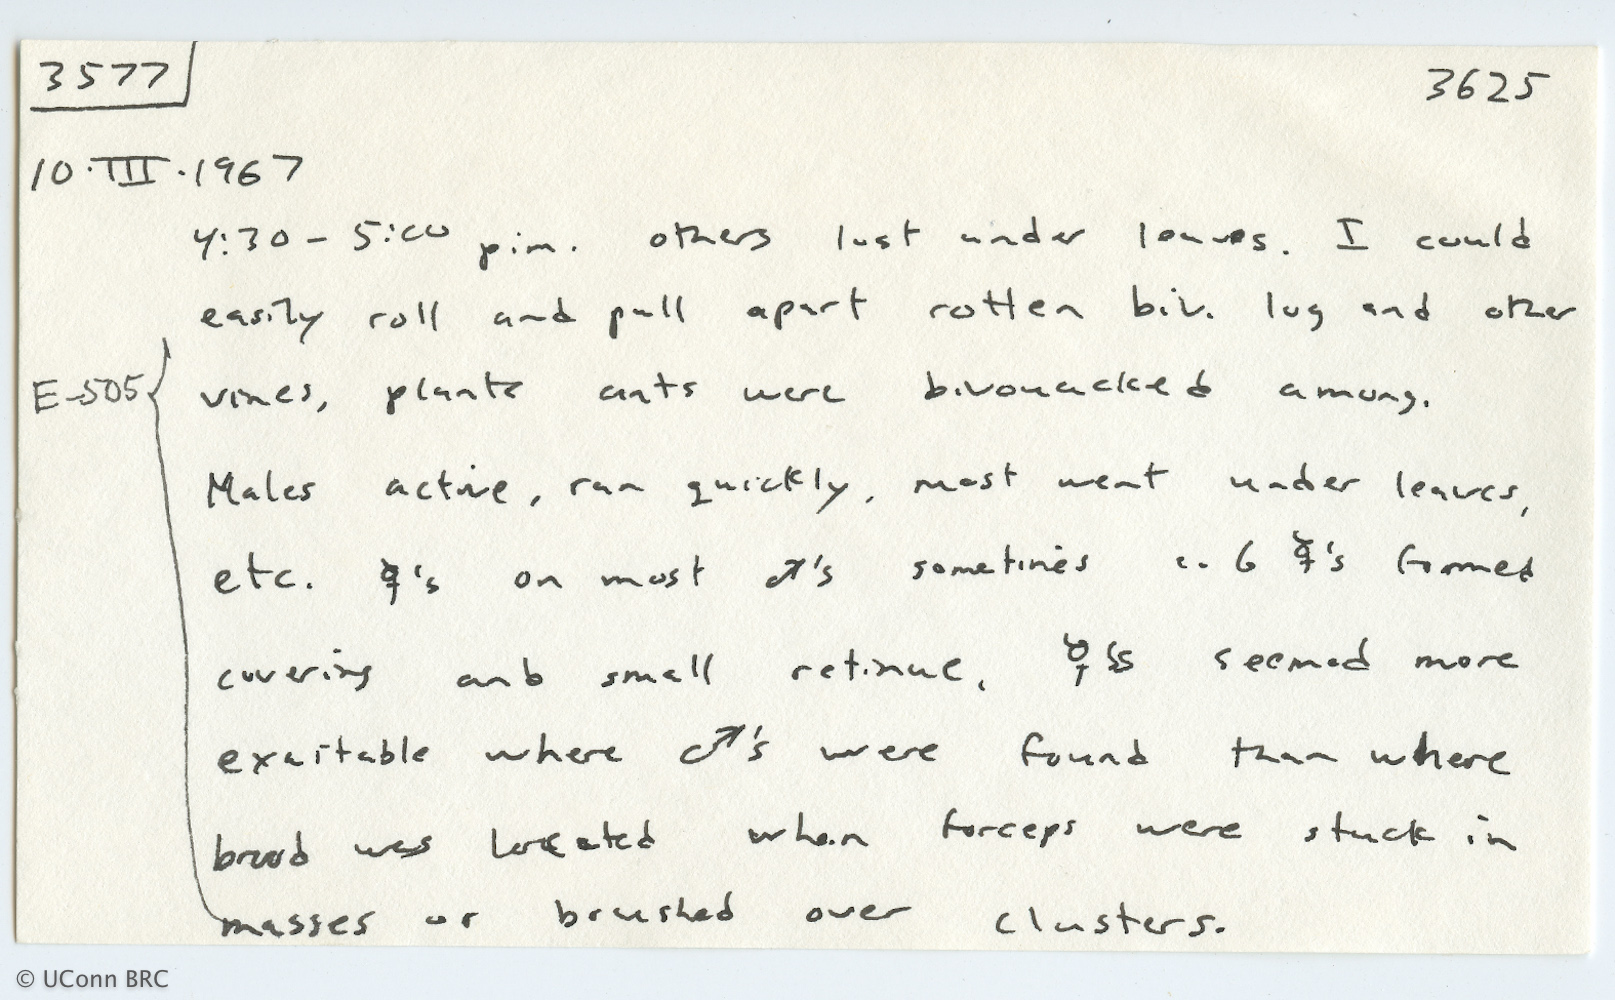 3577
3625
10·III·1967
4:30 - 5:00 p.m. others lost under leaves. I could
easily roll and pull apart rotten biv. log and other
E-505
vines, plants ants were bivouacked among.
Males active, ran quickly, most went under leaves,
etc. ☿'s on most ♂'s sometimes c. 6 ☿'s formed
covering and small retinue. ☿ss seemed more
exaitable where ♂'s were found than where
brood was located when forceps were stuck in
masses or brushed over clusters.
© UConn BRC